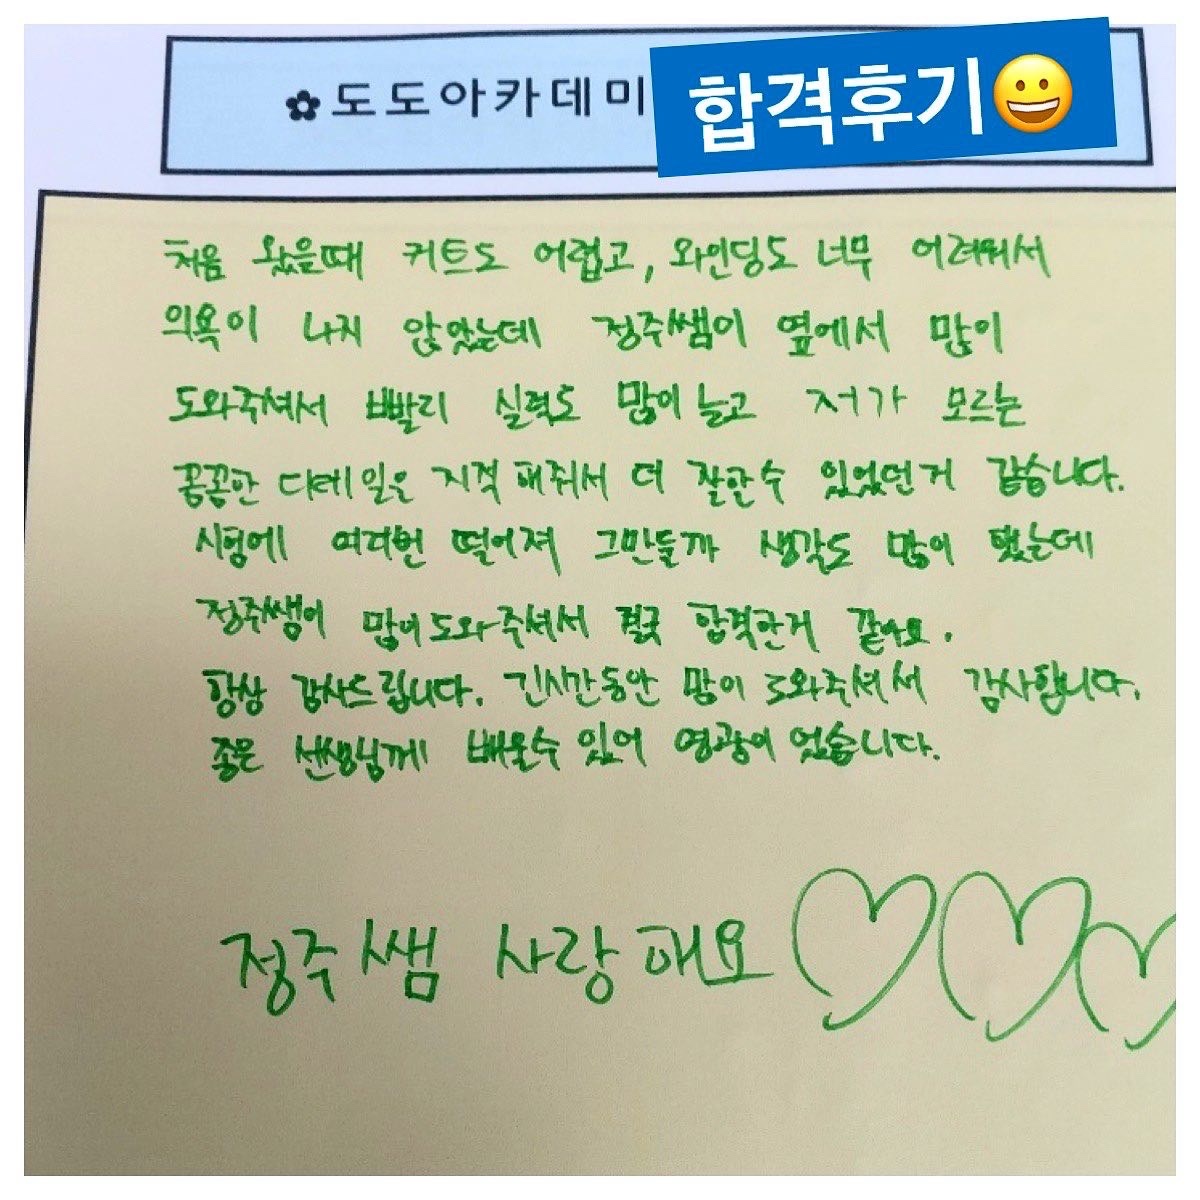 ✿도도아카데미
합격후기😀
처음 왔을때 커트도 어렵고, 와인딩도 너무 어려워서
의욕이 나지 않았는데 정주쌤이 옆에서 많이
도와주셔서 빨리 실력도 많이 늘고 저가 모르는
꼼꼼한 디테일은 지적해줘서 더 잘할수 있었던거 같습니다.
시험에 여러번 떨어져 그만둘까 생각도 많이 했는데
정주쌤이 많이 도와주셔서 결국 합격한거 같아요.
항상 감사드립니다. 긴시간동안 많이 도와주셔서 감사합니다.
좋은 선생님께 배울수 있어 영광이었습니다.
정주쌤 사랑해요♡♡♡